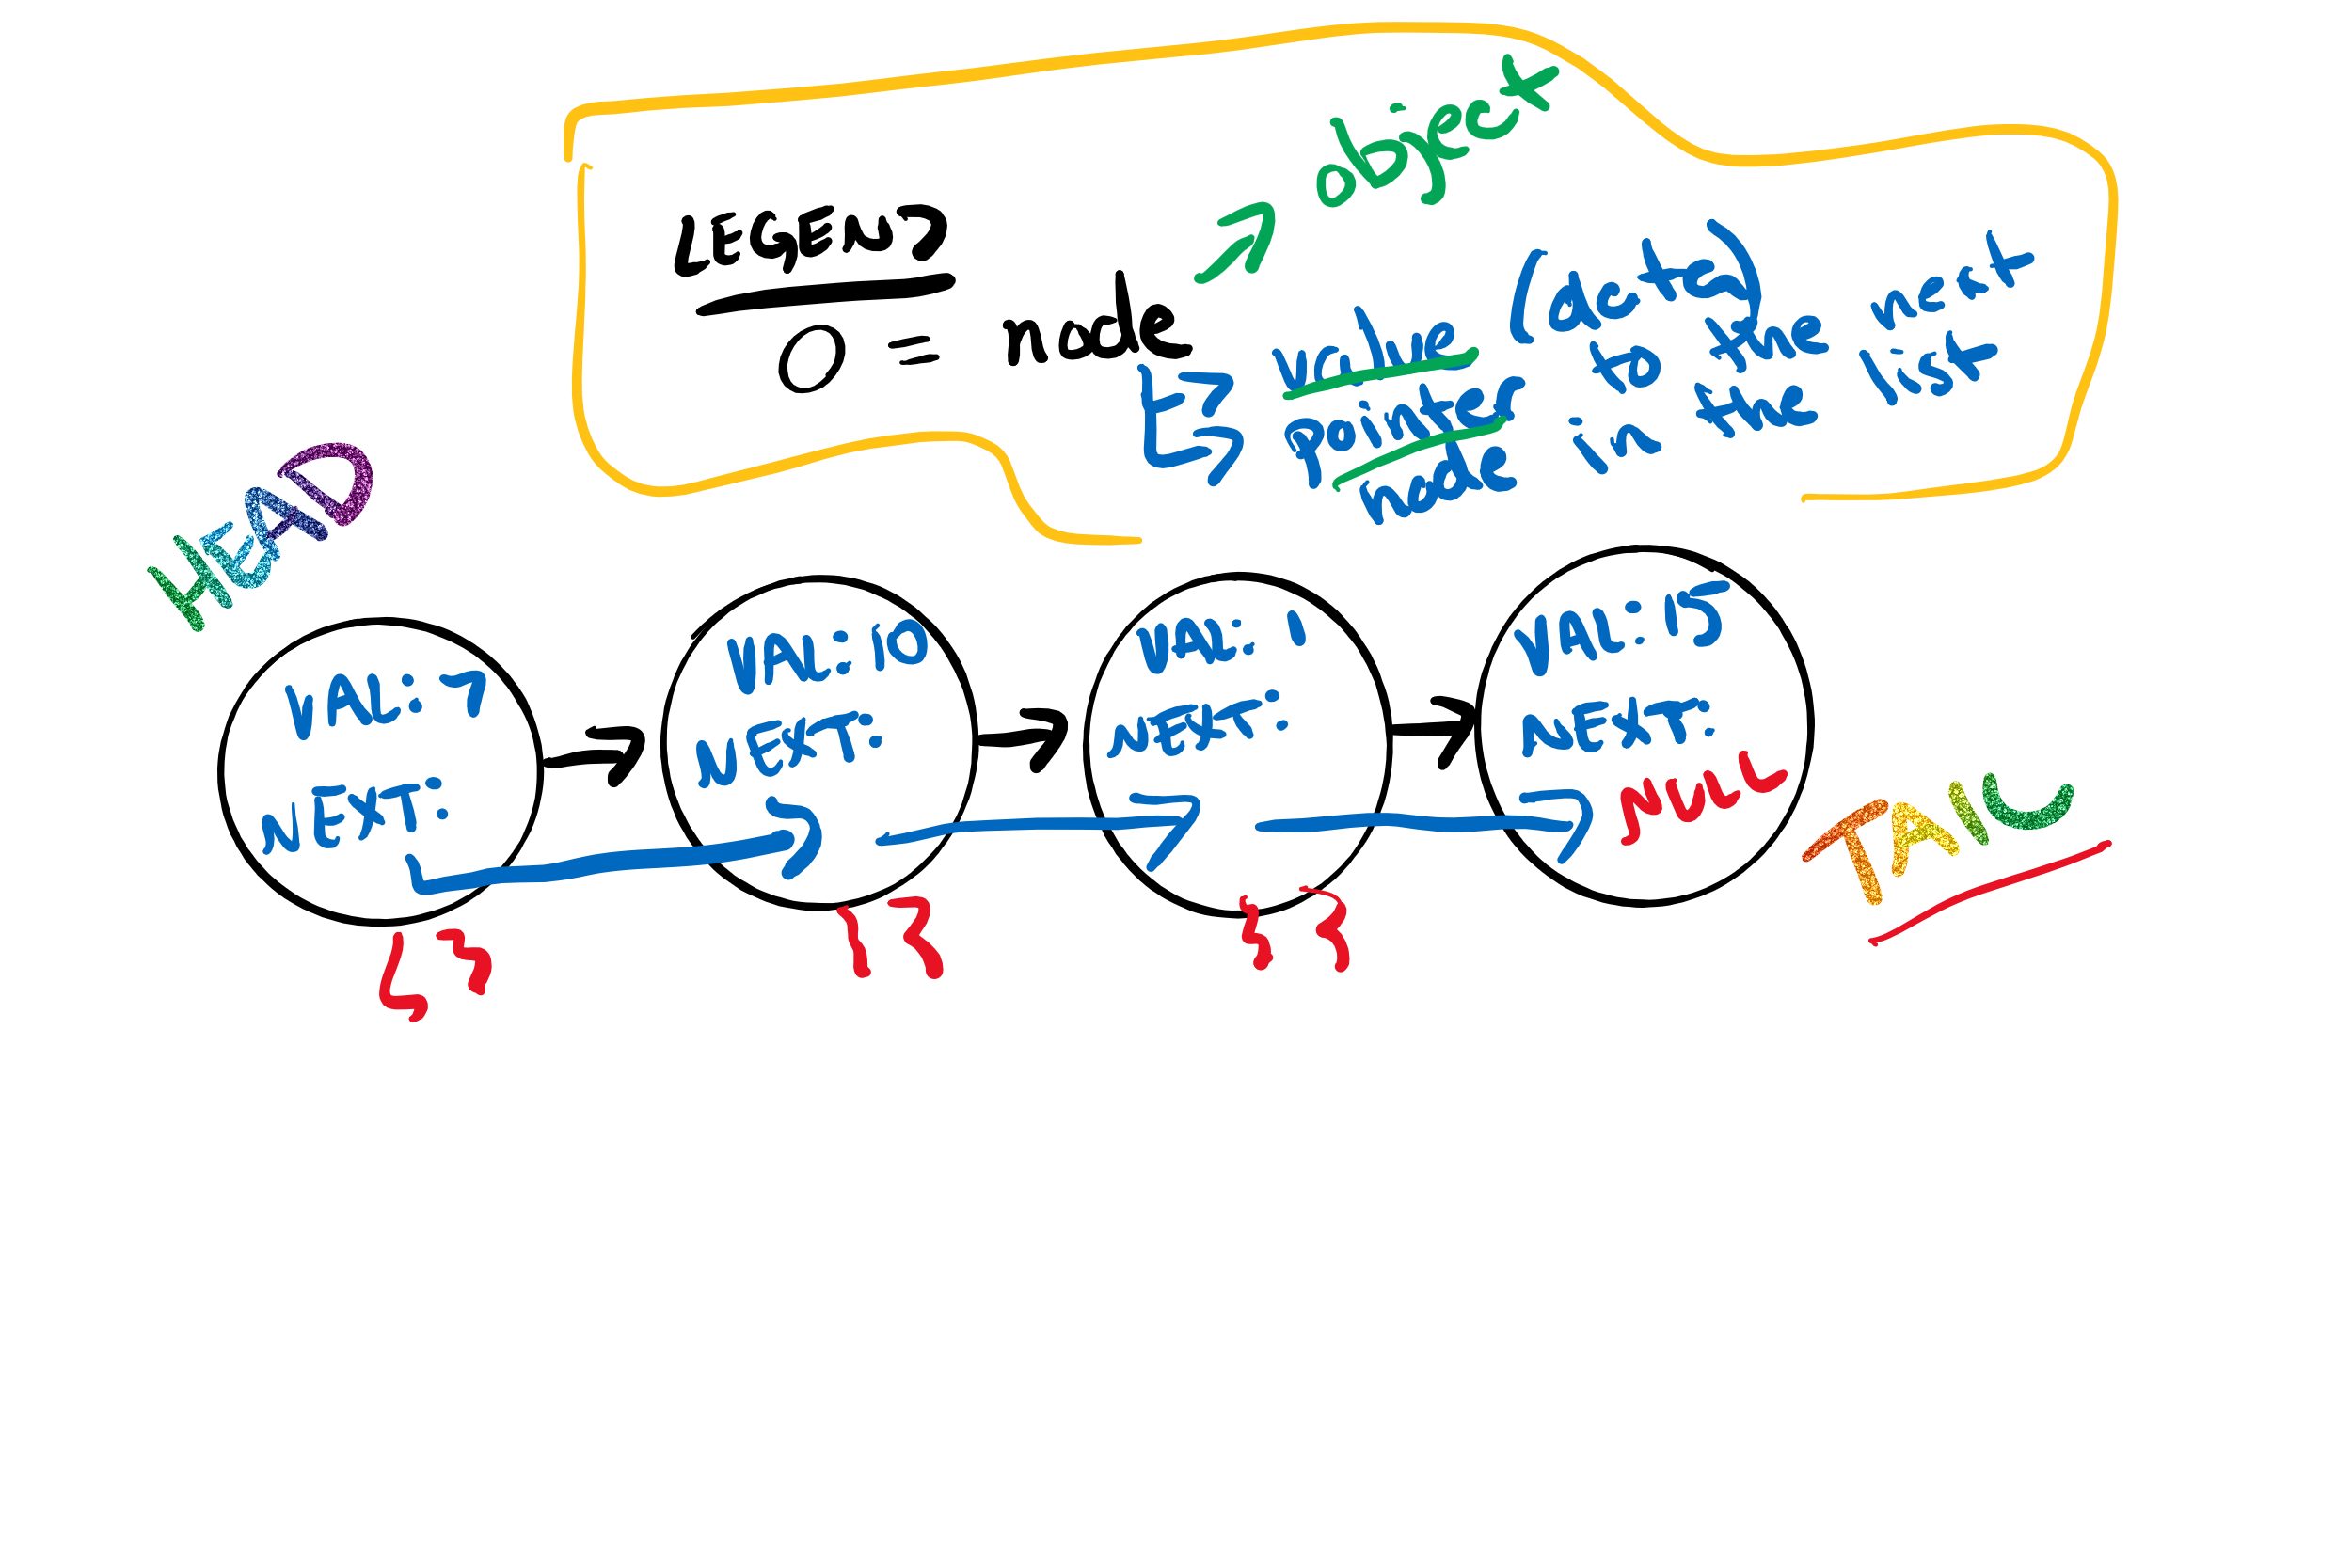 object
LEGEND
O = node
value (data)
pointer to the next
node in the list
HEAD
VAL: 7
NEXT:
VAL: 10
NEXT:
VAL: 1
NEXT:
VAL: 15
NEXT:
NULL
TAIL